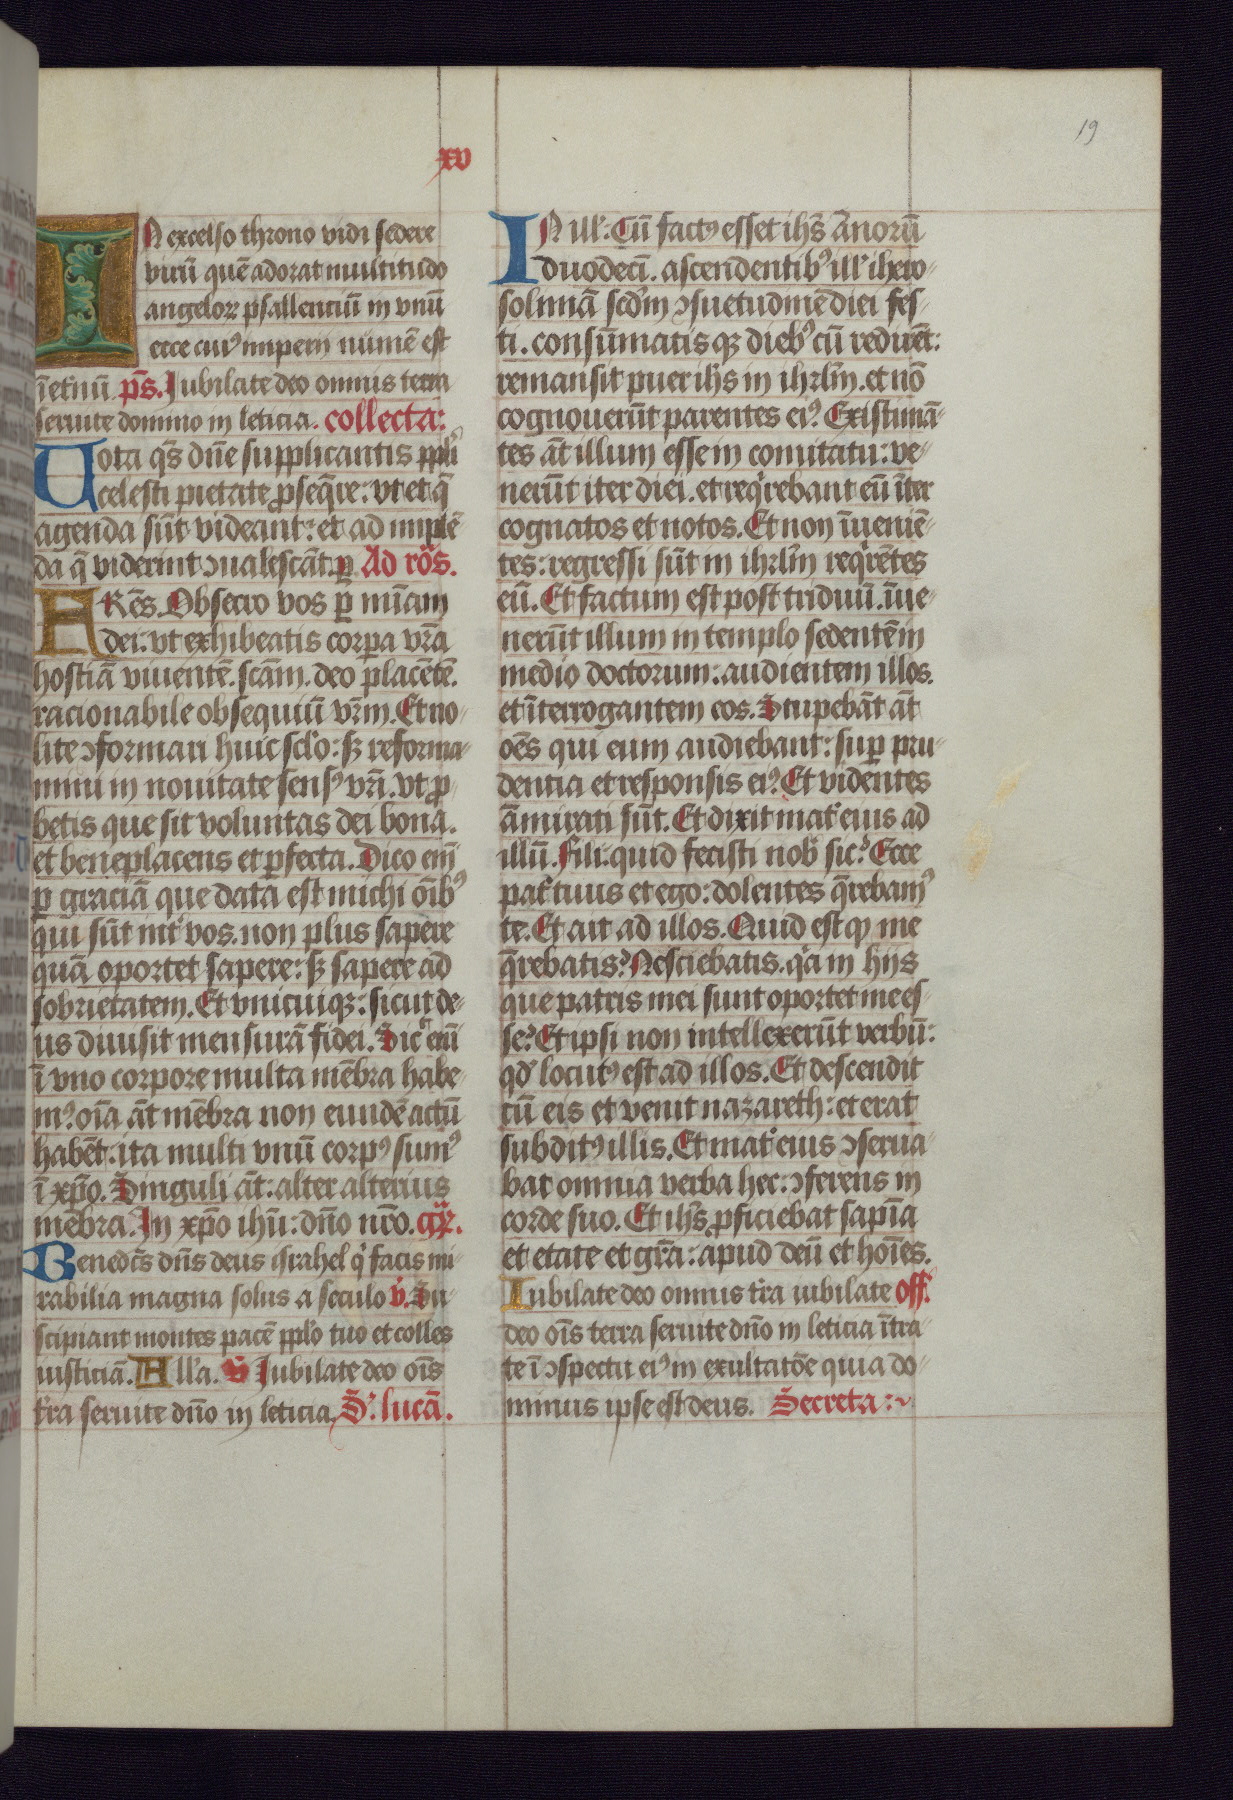 19
xv
IN excelso throno vidi sedere
virū quē adorat multitudo
angeloꝝ psallenciū in vnū
ecce cuiꝰ imperij numē est
ī etnū. p̄s. Iubilate deo omnis terra
seruite domino in leticia. collecta:
Uota q̄s dn̄e supplicantis ppli
celesti pietate ꝓseq̄re: vt et q̄
agenda sūt videant: et ad implē
da q̄ viderint ↄualescāt. ꝑ Ad rōs.
FRēs. Obsecro vos ꝑ mīam
dei: vt exhibeatis corpa vr̄a
hostiā viuentē. scām. deo placētē.
racionabile obsequiū vr̄m. Et no-
lite ↄformari huic sclo: sꝫ reforma-
mini in nouitate sensꝰ vr̄i. vt ꝓ-
betis que sit voluntas dei bona.
et beneplacens et ꝑfecta. Dico em̄
ꝑ graciā que data est michi oībꝰ
qui sūt int vos. non plus sapere
quā oportet sapere: sꝫ sapere ad
sobrietatem. Et vnicuiqꝫ: sicut de-
us diuisit mensurā fidei. Sic em̄
ī vno corpore multa mēbra habe-
mꝰ: oīa āt mēbra non eundē actū
habēt: ita multi vnū corpꝰ sumꝰ
ī xp̄o. Singuli āt: alter alterius
mēbra. In xp̄o ihū: dn̄o nr̄o. Gr̄.
Benedc̄s dn̄s deus israhel q' facis mi-
rabilia magna solus a seculo v̄. Su-
scipiant montes pacē pplo tuo et colles
iusticiā. Alla. v̄ Iubilate deo oīs
tr̄a seruite dn̄o in leticia. S. lucā.
IN ill': Cū factꝰ esset ihs̄ Annorū
duodecī. ascendentibꝰ ill' ihero-
solimā scdm̄ ↄsuetudinē diei fes-
ti. consūmatis qꝫ diebꝰ cū redirēt:
remansit puer ihs̄ in ihrlm̄. et nō
cognouerūt parentes eiꝰ. Existimā-
tes āt illum esse in comitatu: ve-
nerūt iter diei. et req'rebant eū īter
cognatos et notos. Et non īueniē-
tes: regressi sūt in ihrlm̄ req'rētes
eū. Et factum est post triduū. īue-
nerūt illum in templo sedentē in
medio doctorum: audientem illos.
et īterrogantem eos. Stupebāt āt
oēs qui eum audiebant: suꝑ pru-
dentia et responsis eiꝰ. Et videntes
āmirati sūt. Et dixit mat eius ad
illū. Fili: quid fecisti nob sic? Ecce
pat tuus et ego: dolentes q̄rebamꝰ
te. Et ait ad illos. Quid est qꝫ me
q̄rebatis? Nesciebatis. q'a in hijs
que patris mei sunt oportet me es-
se? Et ipsi non intellexerūt verbū:
qd' locutꝰ est ad illos. Et descendit
cū eis et venit nazareth: et erat
subditꝰ illis. Et mat eius ↄserua-
bat omnia verba hec: ↄferens in
corde suo. Et ihs̄ ꝓficiebat sapīa
et etate et gr̄a: apud deū et hoīes.
Iubilate deo omnis tr̄a iubilate off.
deo oīs terra seruite dn̄o in leticia ītra-
te ī ↄspectu eiꝰ in exultatōe quia do-
minus ipse est deus. Secreta: